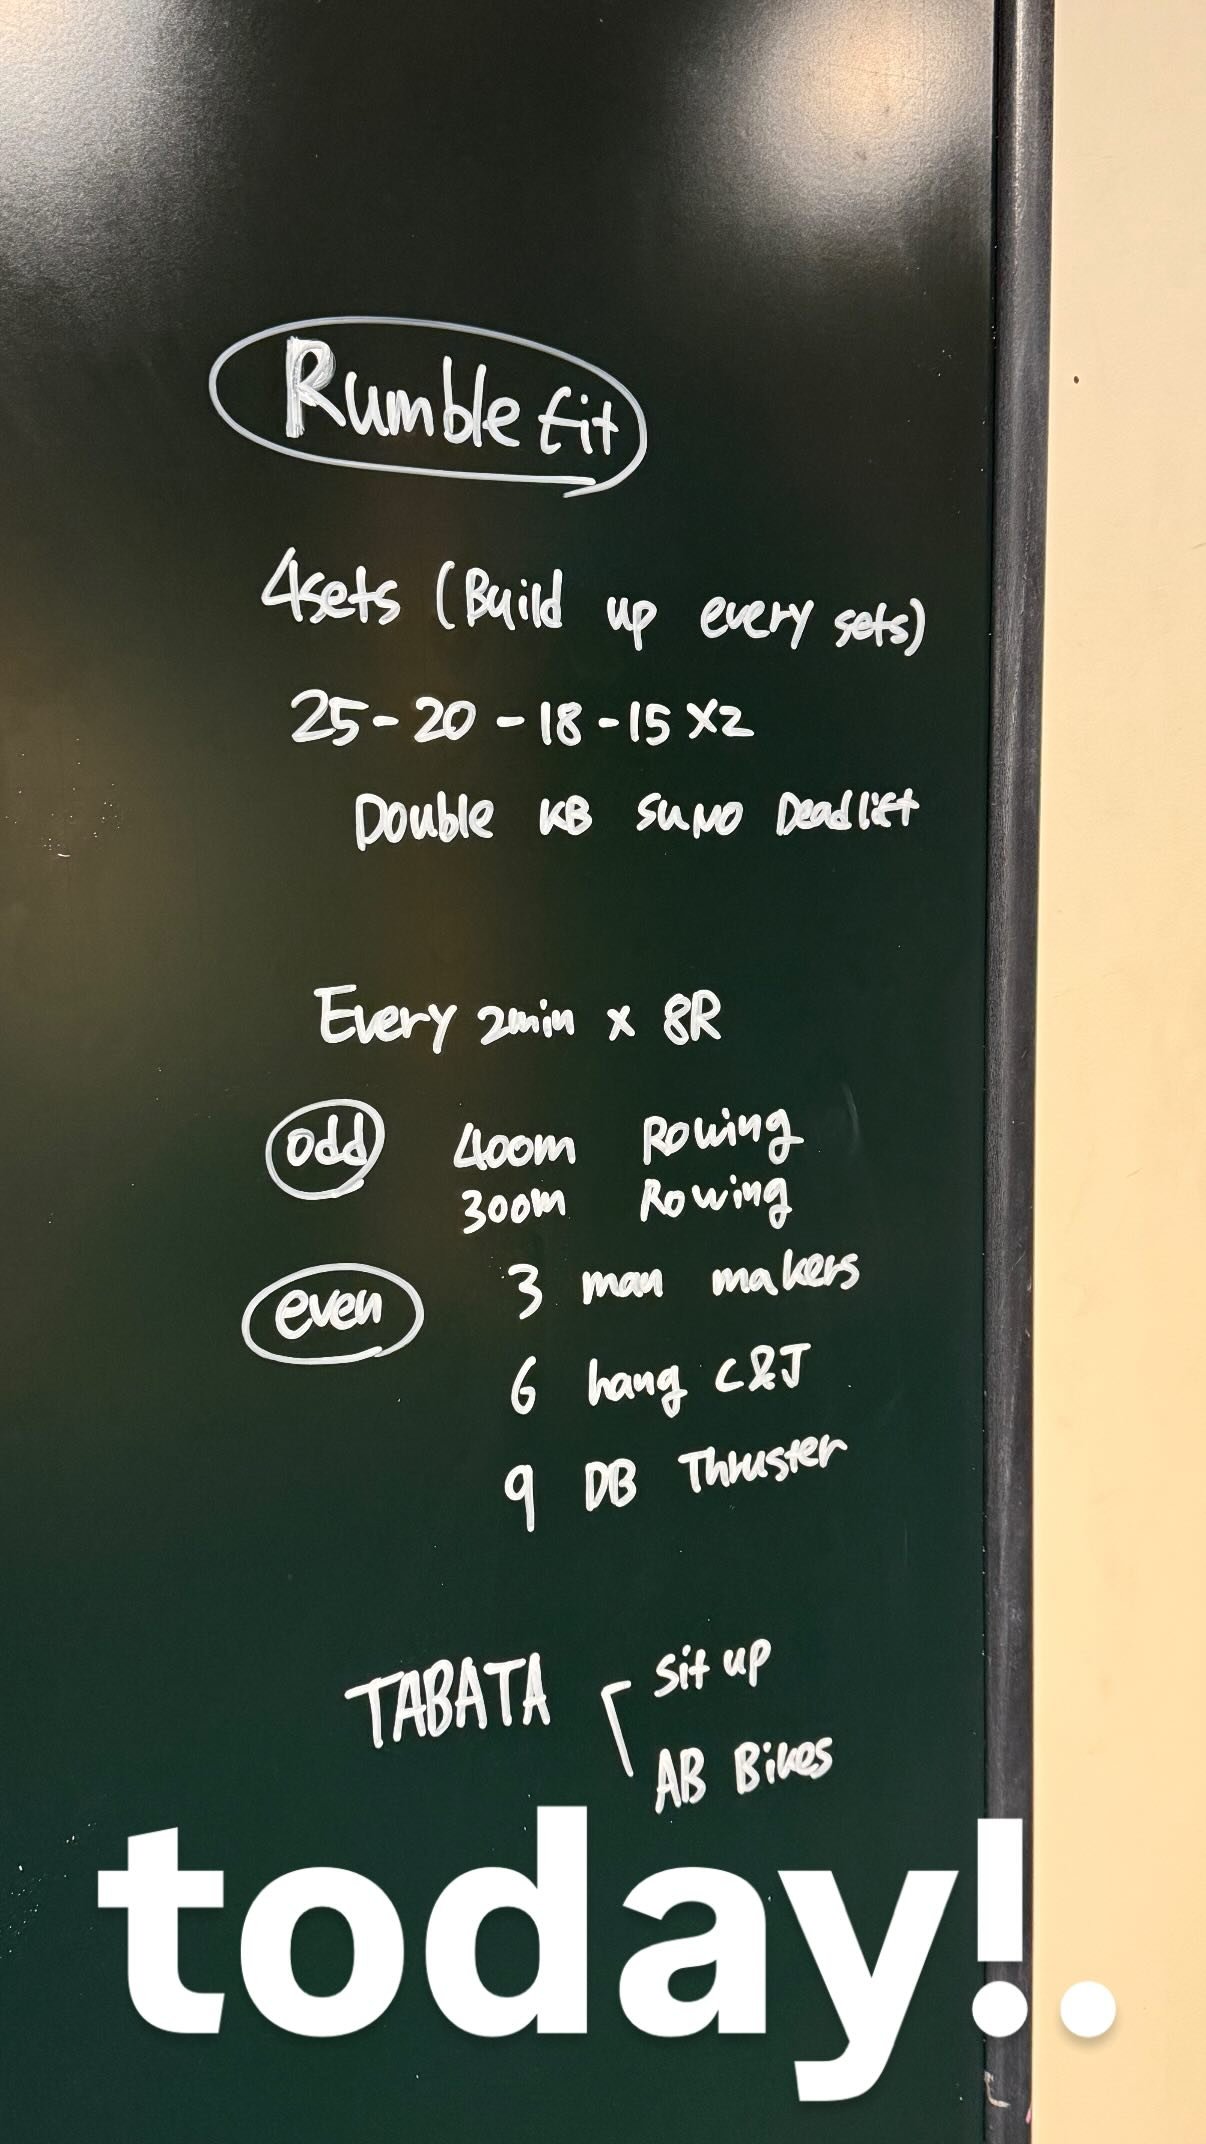 Rumble fit
4sets (Build up every sets)
25-20-18-15 X2
Double KB SUMO Deadlift
Every 2min x 8R
odd 400m Rowing
300m Rowing
even 3 man makers
6 hang C&J
9 DB Thruster
TABATA
sit up
AB Bikes
today!.